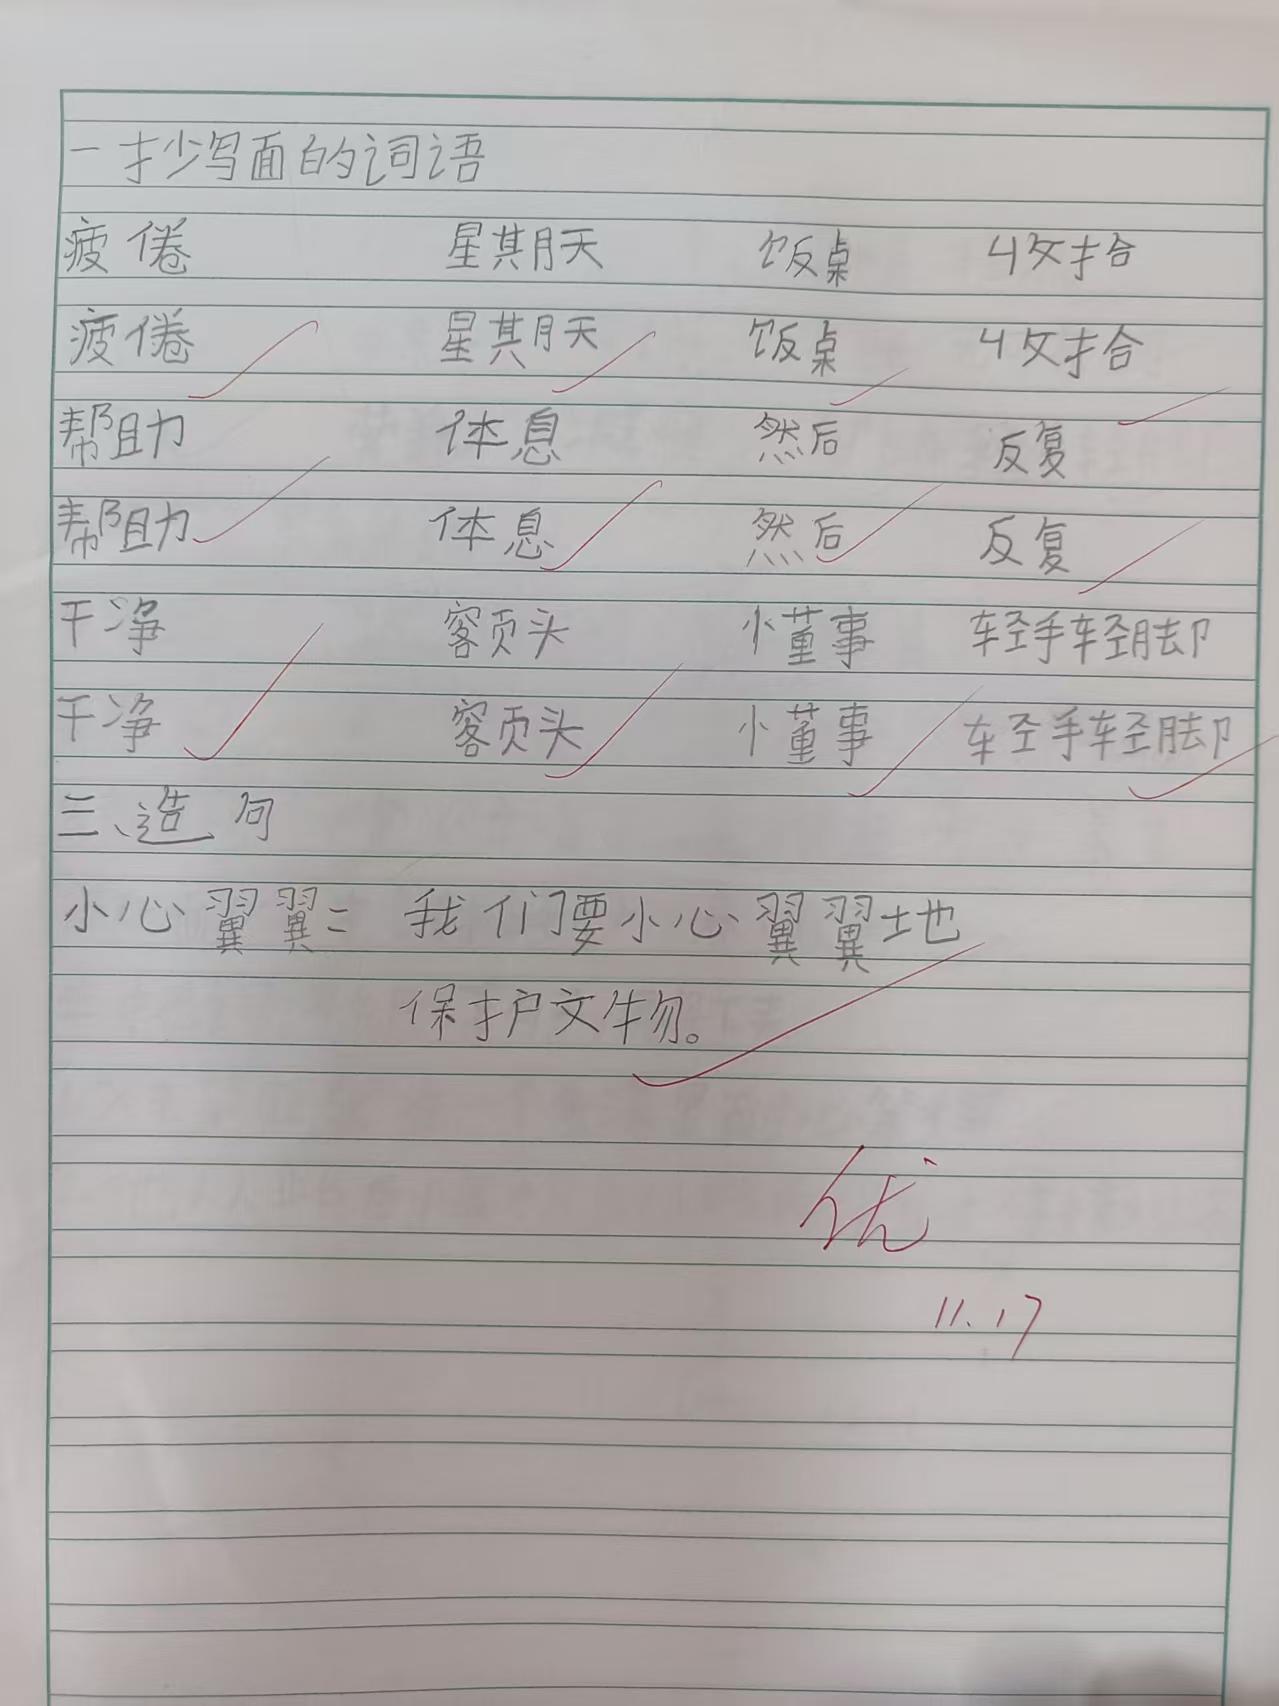 一抄写面的词语
疲倦 星期天 饭桌 收拾
疲倦 星期天 饭桌 收拾
帮助 体息 然后 反复
帮助 体息 然后 反复
干净 额头 小董事 轻手轻脚
干净 额头 小董事 轻手轻脚
三、造句
小心翼翼：我们要小心翼翼地
保护文物。
优
11.17